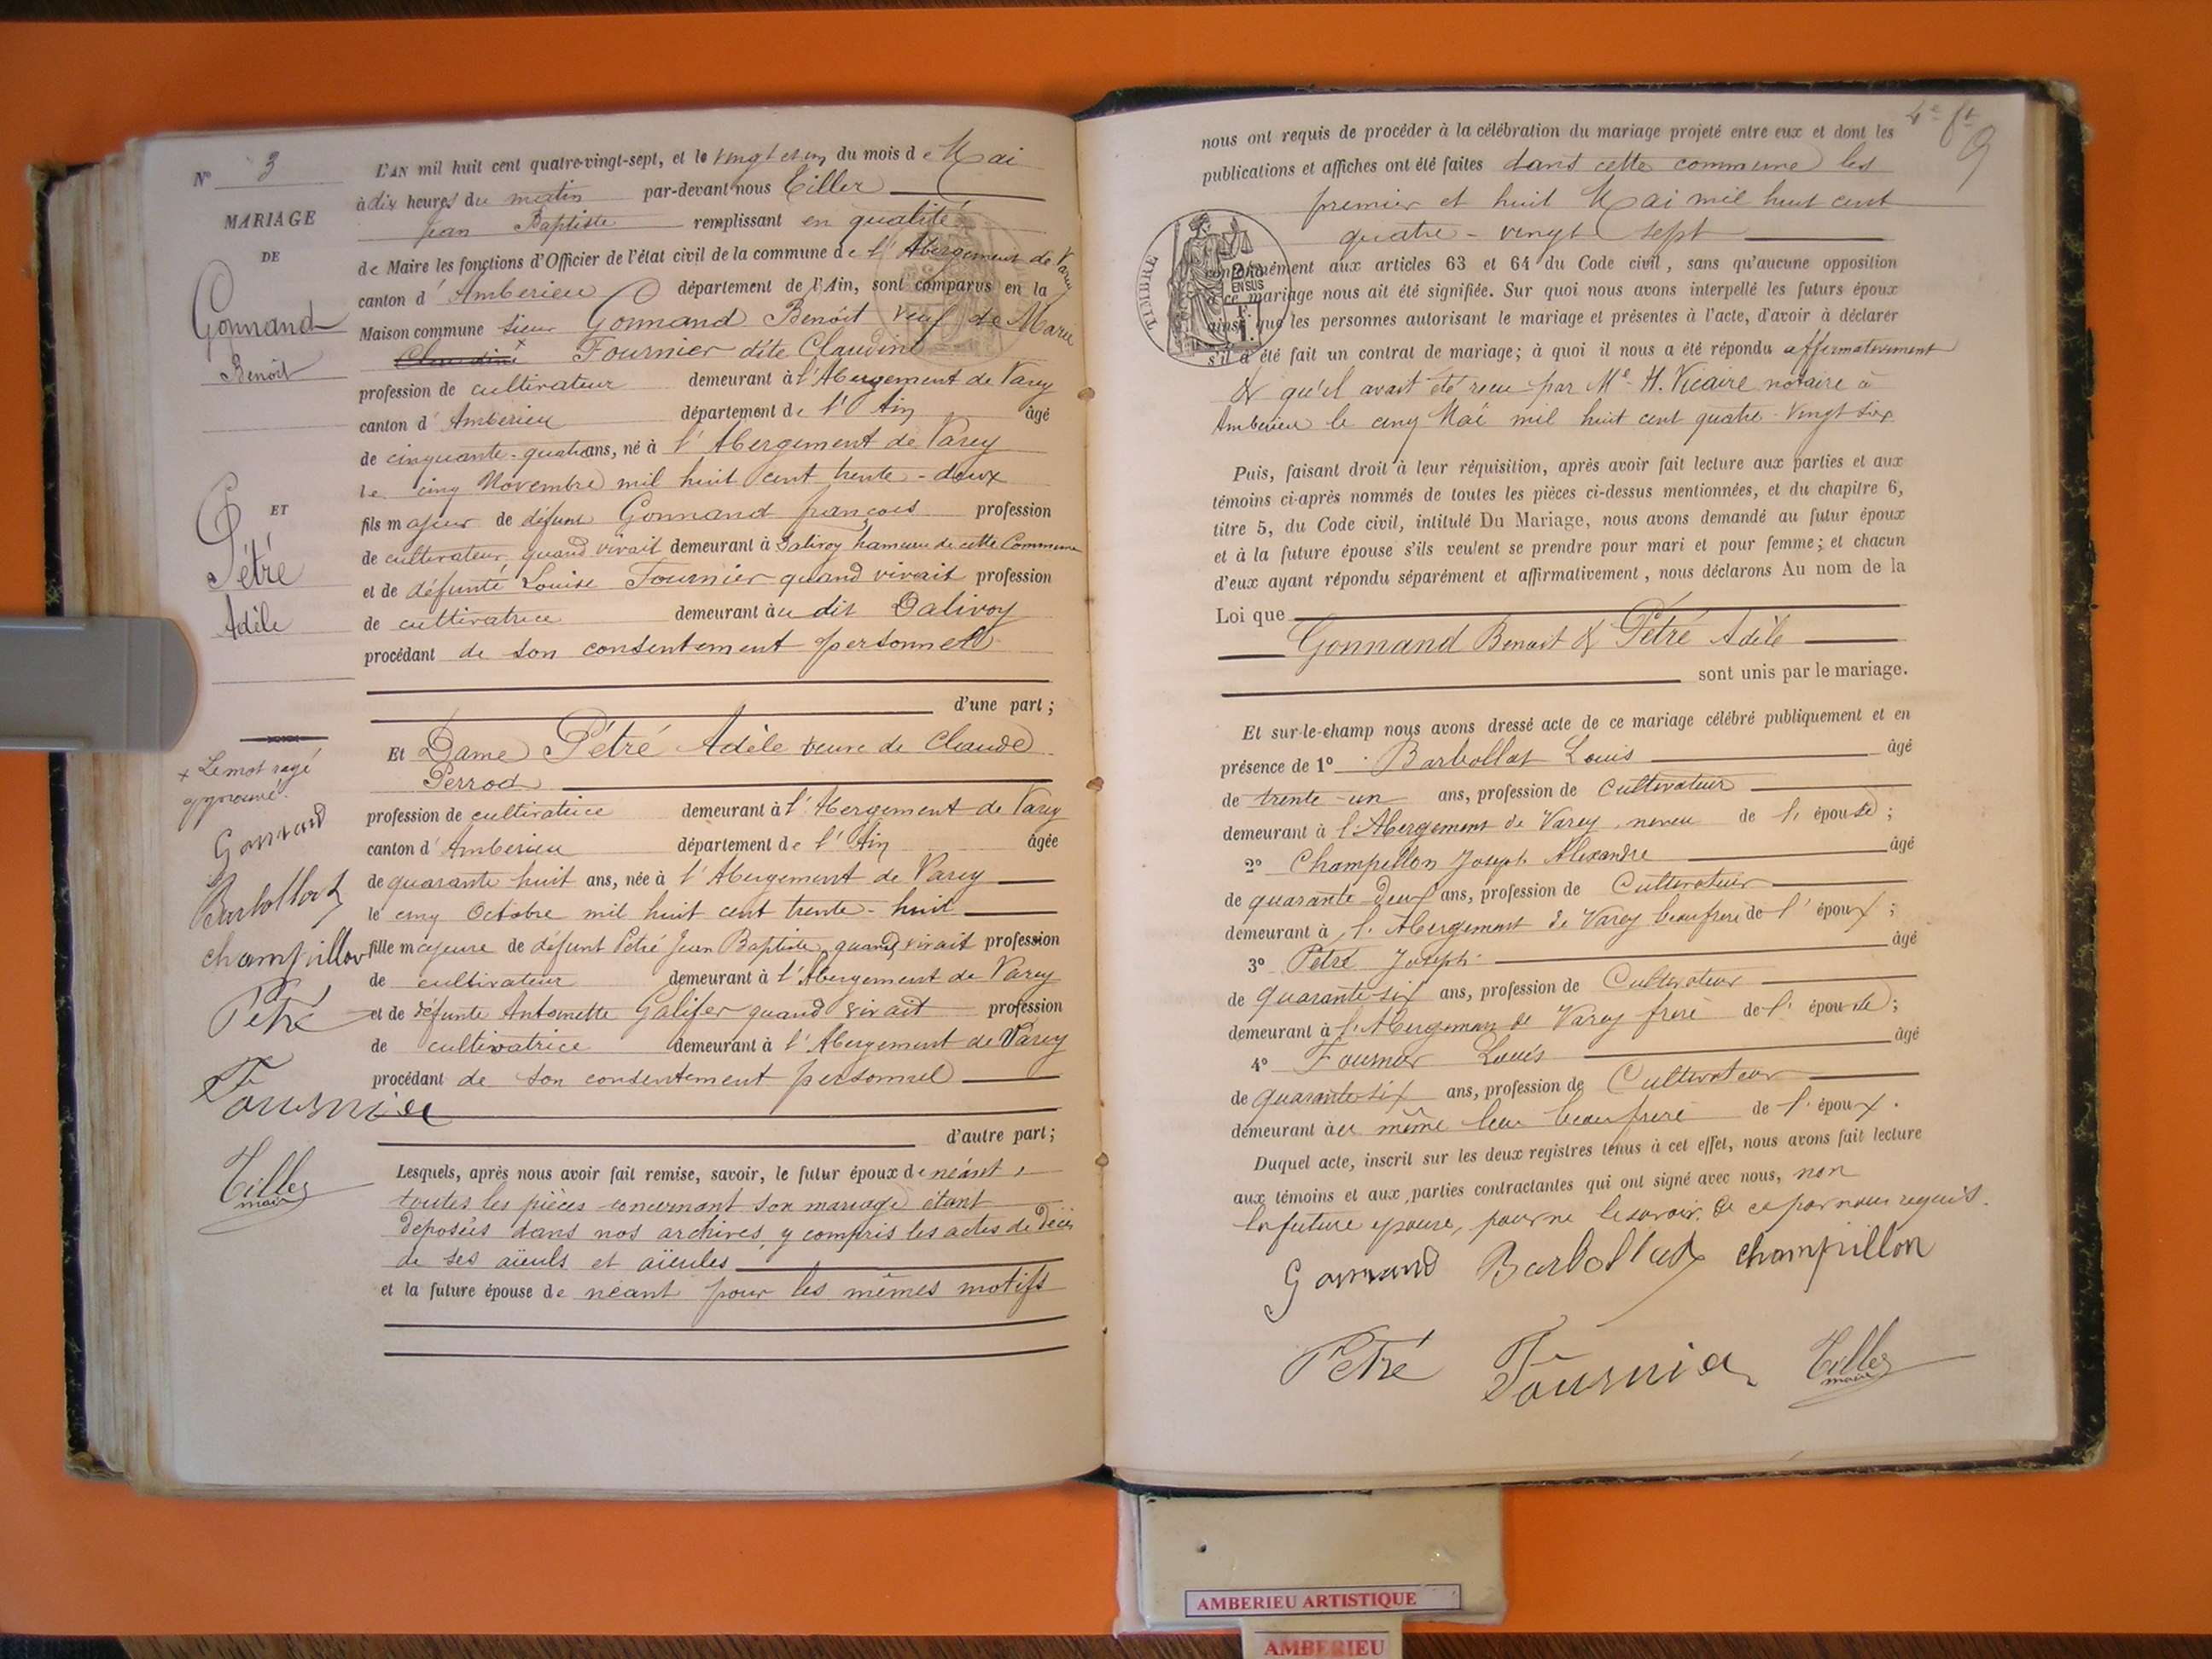 N° 3
MARIAGE
DE
Gonnand
Benoit
ET
Pétré
Adèle
+ Le mot rayé
approuvé.
Gonnand
Barbollat
champillon
Pétré
Fournier
Tiller
maire
L'AN mil huit cent quatre-vingt-sept, et le vingt et un du mois de Mai
à dix heures du matin par-devant nous Tiller
Jean Baptiste remplissant en qualité
de Maire les fonctions d'Officier de l'état civil de la commune de l'Abergement de Varey
canton d'Amberieu département de l'Ain, sont comparus en la
Maison commune sieur Gonnand Benoit veuf de Marie
Claudine + Fournier dite Claudine
profession de cultivateur demeurant à l'Abergement de Varey
canton d'Amberieu département de l'Ain âgé
de cinquante-quatre ans, né à l'Abergement de Varey
le cinq Novembre mil huit cent trente-deux
fils majeur de défunt Gonnand françois profession
de cultivateur, quand vivait demeurant à Dalivoy hameau de cette Commune
et de défunte Louise Fournier quand vivait profession
de cultivatrice demeurant au dit Dalivoy
procédant de son consentement personnel
d'une part ;
Et Dame Pétré Adèle veuve de Claude
Perrod
profession de cultivatrice demeurant à l'Abergement de Varey
canton d'Amberieu département de l'Ain âgée
de quarante huit ans, née à l'Abergement de Varey
le cinq Octobre mil huit cent trente-huit
fille majeure de défunt Pétré Jean Baptiste quand vivait profession
de cultivateur demeurant à l'Abergement de Varey
et de défunte Antoinette Galifer quand vivait profession
de cultivatrice demeurant à l'Abergement de Varey
procédant de son consentement personnel
d'autre part ;
Lesquels, après nous avoir fait remise, savoir, le futur époux de néant,
toutes les pièces concernant son mariage étant
déposées dans nos archives, y compris les actes de décès
de ses aïeuls et aïeules
et la future épouse de néant pour les mêmes motifs
9
nous ont requis de procéder à la célébration du mariage projeté entre eux et dont les
publications et affiches ont été faites dans cette commune les
premier et huit Mai mil huit cent
quatre-vingt sept
TIMBRE
EN SUS
conformément aux articles 63 et 64 du Code civil, sans qu'aucune opposition
à ce mariage nous ait été signifiée. Sur quoi nous avons interpellé les futurs époux
ainsi que les personnes autorisant le mariage et présentes à l'acte, d'avoir à déclarer
s'il a été fait un contrat de mariage ; à quoi il nous a été répondu affirmativement
& qu'il avait été recu par Me H. Vicaire notaire à
Amberieu le cinq Mai mil huit cent quatre-vingt
Puis, faisant droit à leur réquisition, après avoir fait lecture aux parties et aux
témoins ci-après nommés de toutes les pièces ci-dessus mentionnées, et du chapitre 6,
titre 5, du Code civil, intitulé Du Mariage, nous avons demandé au futur époux
et à la future épouse s'ils veulent se prendre pour mari et pour femme ; et chacun
d'eux ayant répondu séparément et affirmativement, nous déclarons Au nom de la
Loi que
Gonnand Benoit & Pétré Adèle
sont unis par le mariage.
Et sur-le-champ nous avons dressé acte de ce mariage célébré publiquement et en
présence de 1° Barbollat Louis âgé
de trente-un ans, profession de Cultivateur
demeurant à l'Abergement de Varey, neveu de l'épouse ;
2° Champillon Joseph Alexandre âgé
de quarante deux ans, profession de Cultivateur
demeurant à l'Abergement de Varey beaufrere de l'époux ;
3° Pétré Joseph âgé
de quarante six ans, profession de Cultivateur
demeurant à l'Abergement de Varey frere de l'épouse ;
4° Fournier Louis âgé
de quarante six ans, profession de Cultivateur
demeurant au même lieu beaufrere de l'époux.
Duquel acte, inscrit sur les deux registres tenus à cet effet, nous avons fait lecture
aux témoins et aux parties contractantes qui ont signé avec nous, non
la future epouse, pour ne le savoir. De ce par nous requis.
Gonnand Barbollat champillon
Pétré Fournier Tiller
maire
AMBERIEU ARTISTIQUE
AMBERIEU